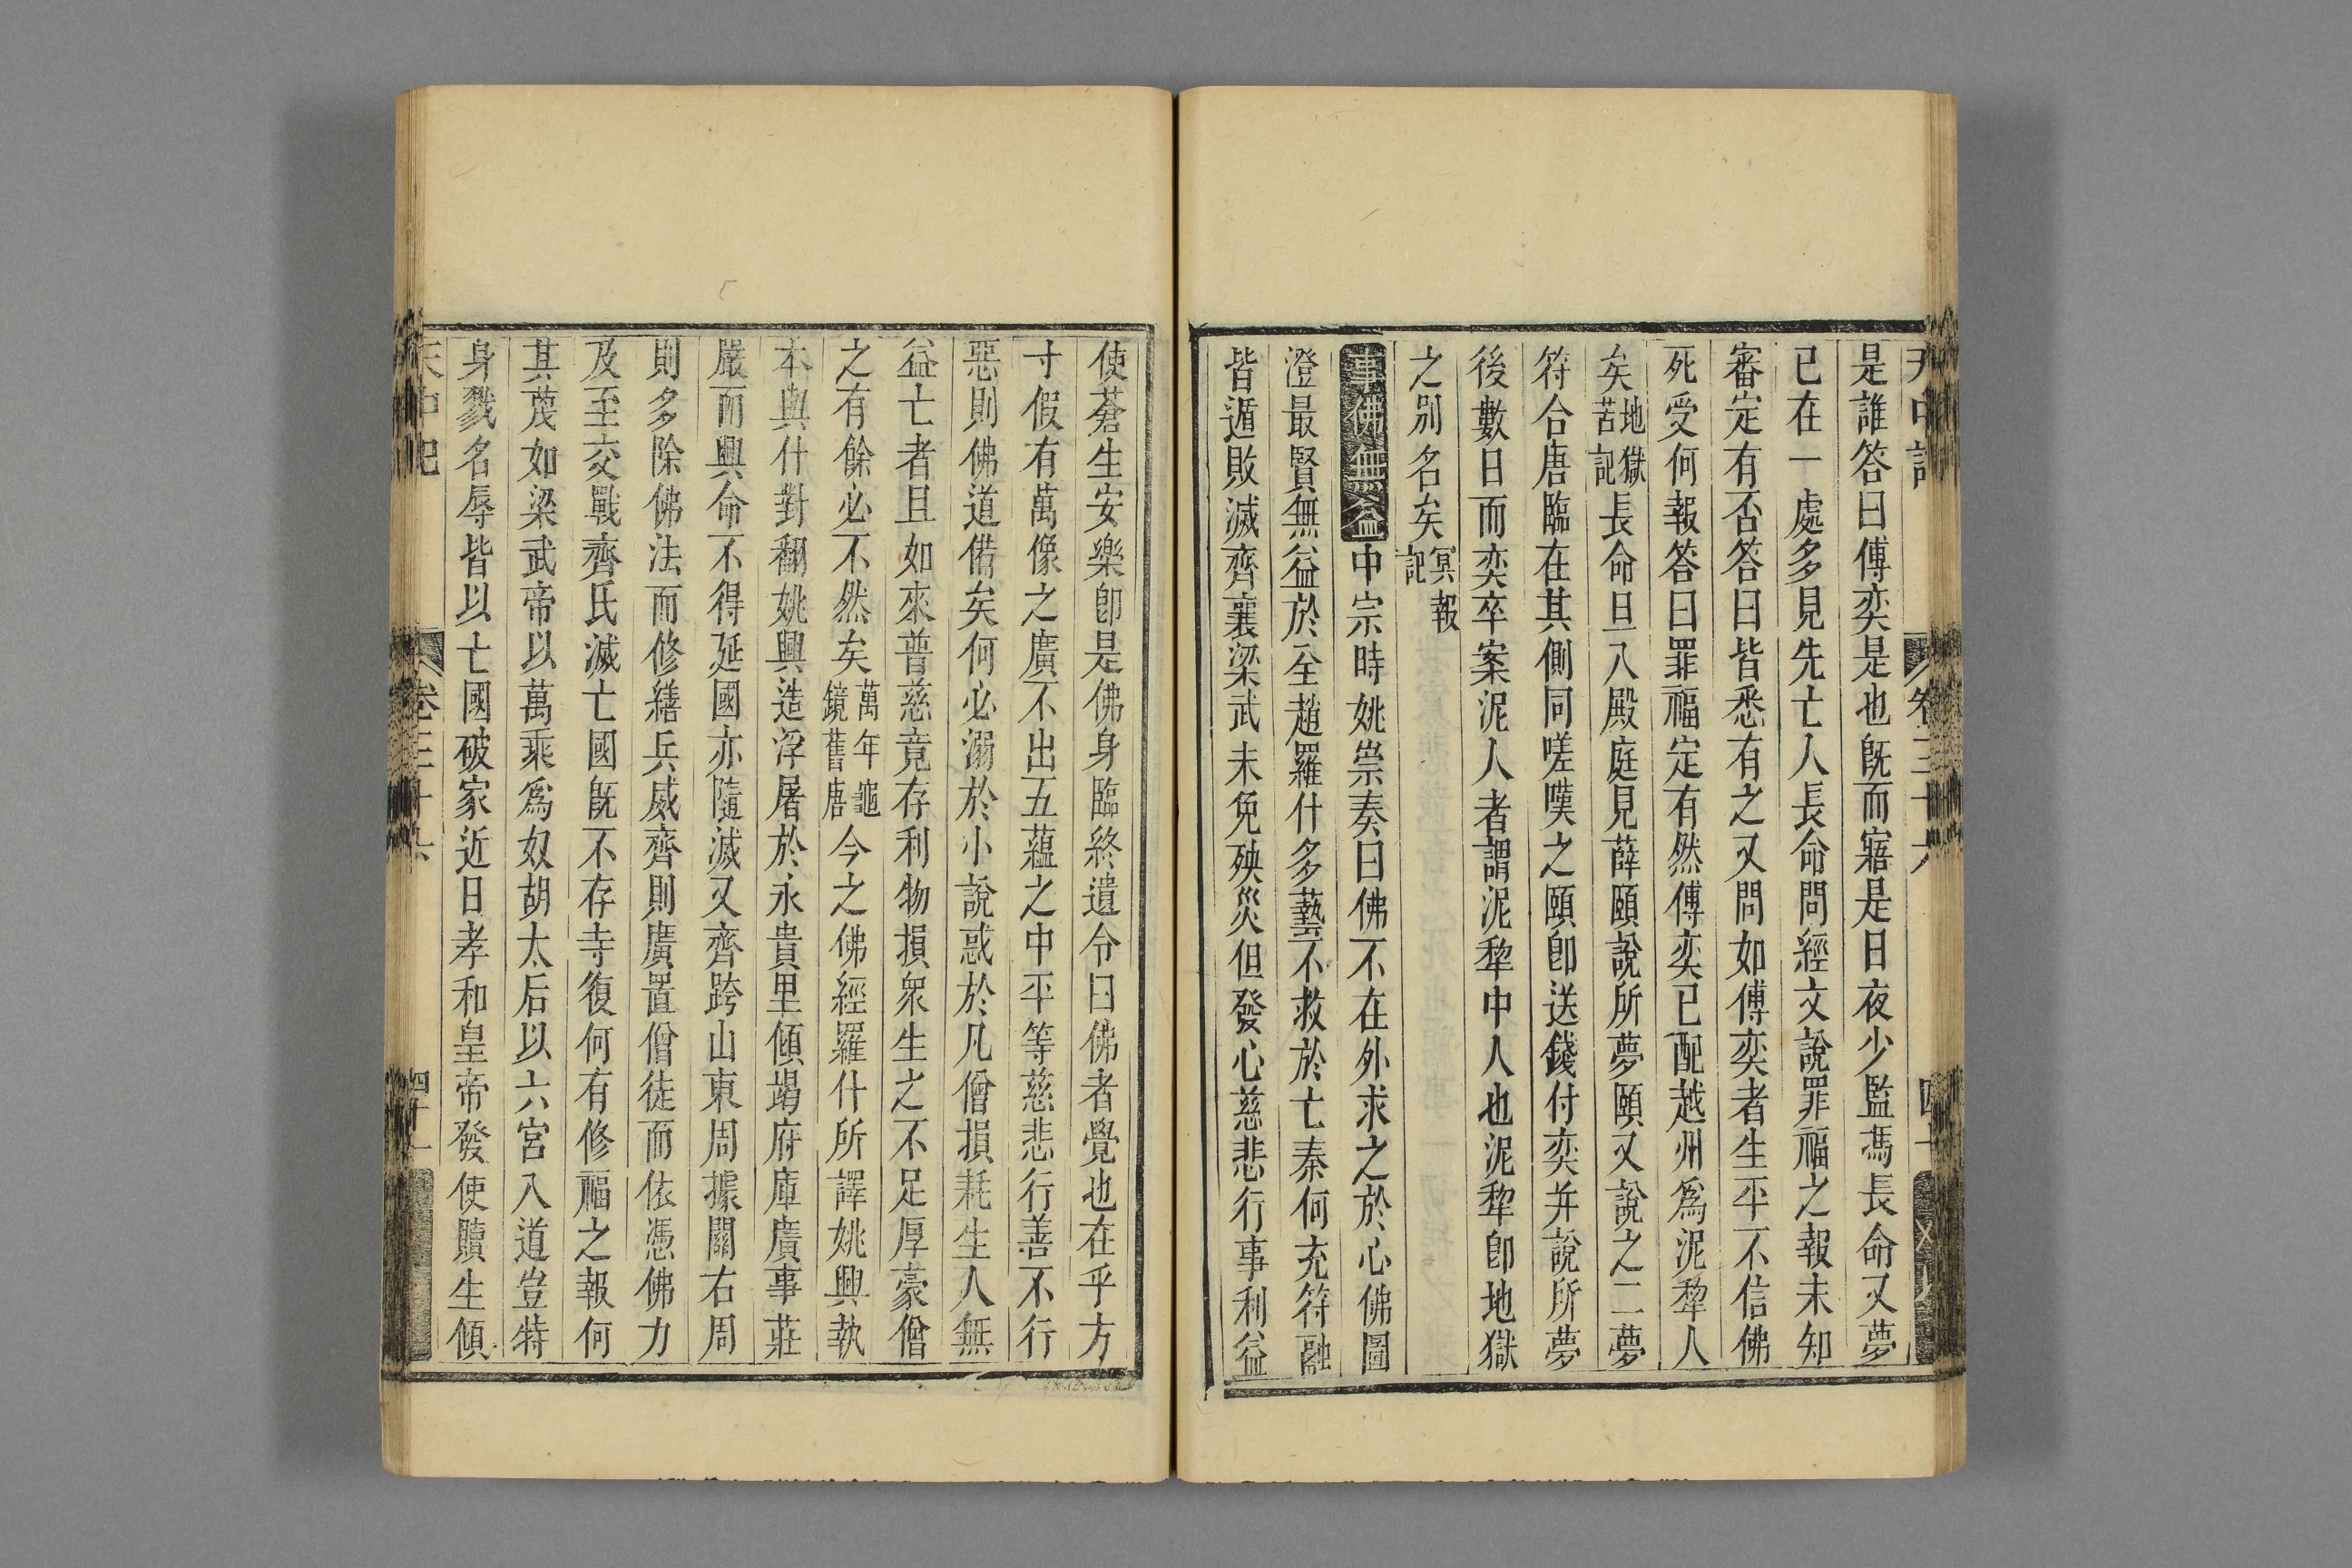 是誰答曰傅奕是也既而寤是日夜少監馮長命又夢
已在一處多見先亡人長命問經文說罪福之報未知
審定有否答曰皆悉有之又問如傅奕者生平不信佛
死受何報答曰罪福定有然傅奕已配越州爲泥犂人
矣地獄苦記長命旦入殿庭見薛頤說所夢頤又說之二夢
符合唐臨在其側同嗟嘆之頤卽送錢付奕并說所夢
後數日而奕卒案泥人者謂泥犂中人也泥犂卽地獄
之別名矣冥報記
事佛無益中宗時姚崇奏曰佛不在外求之於心佛圖
澄最賢無益於全趙羅什多藝不救於亡秦何充符融
皆遁敗滅齊襄梁武未免殃災但發心慈悲行事利益
使蒼生安樂卽是佛身臨終遺令曰佛者覺也在乎方
寸假有萬像之廣不出五蘊之中平等慈悲行善不行
惡則佛道備矣何必溺於小說惑於凡僧損耗生人無
益亡者且如來普慈竟存利物損衆生之不足厚豪僧
之有餘必不然矣萬年龜鏡舊唐今之佛經羅什所譯姚興執
本與什對翻姚興造浮屠於永貴里傾竭府庫廣事莊
嚴而興命不得延國亦隨滅又齊跨山東周據關右周
則多除佛法而修繕兵威齊則廣置僧徒而依憑佛力
及至交戰齊氏滅亡國旣不存寺復何有修福之報何
其蔑如梁武帝以萬乘爲奴胡太后以六宮入道豈特
身戮名辱皆以亡國破家近日孝和皇帝發使贖生傾
天中記 卷三十六 四十一